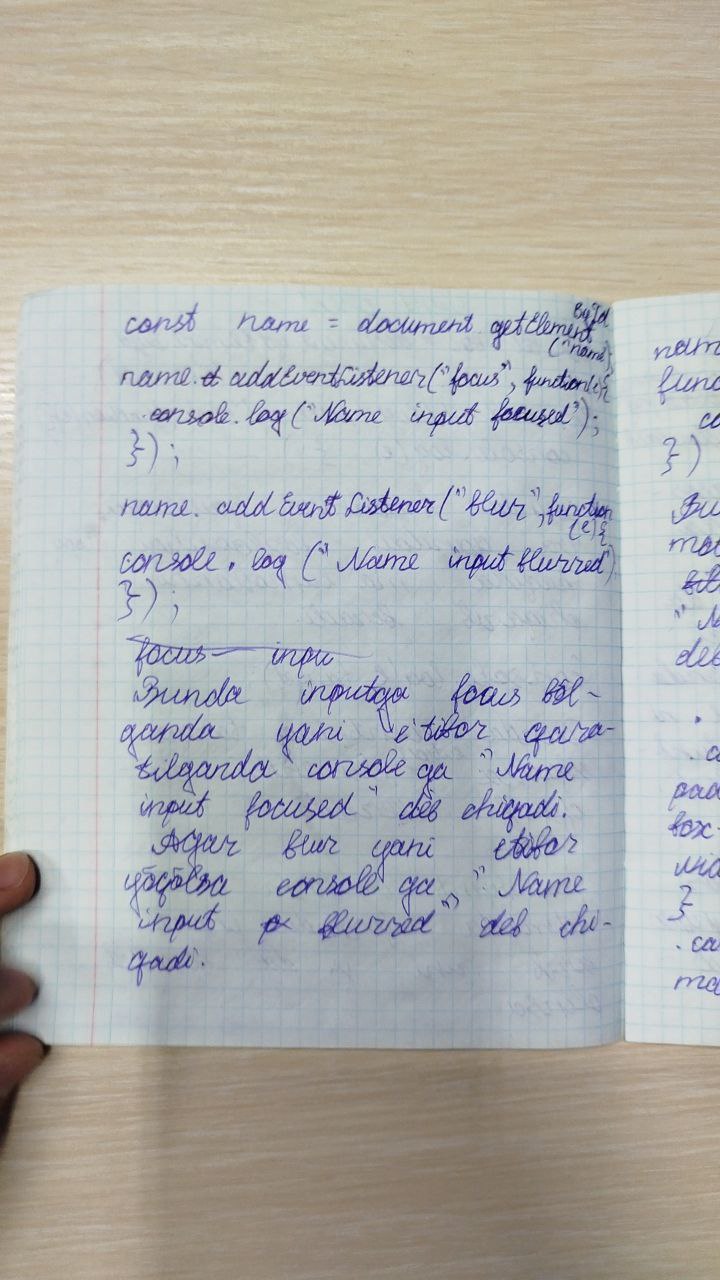 const name = document getElement ById
("name")
name. addEventListener("focus", function(e){
console.log("Name input focused");
});
name. addEventListener("blur", function
(e){
console.log("Name input blurred")
});
focus inpu
Bunda inputga focus bõl-
ganda yani e'tibor qara-
tilganda console ga "Name
input focused" deb chiqadi.
Agar blur yani etibor
yõqõlsa console ga "Name
input blurred" deb chi-
qadi.
nam
func
co
})
Bu
ma
"Na
deb
.
pad
box
}
.ca
ma